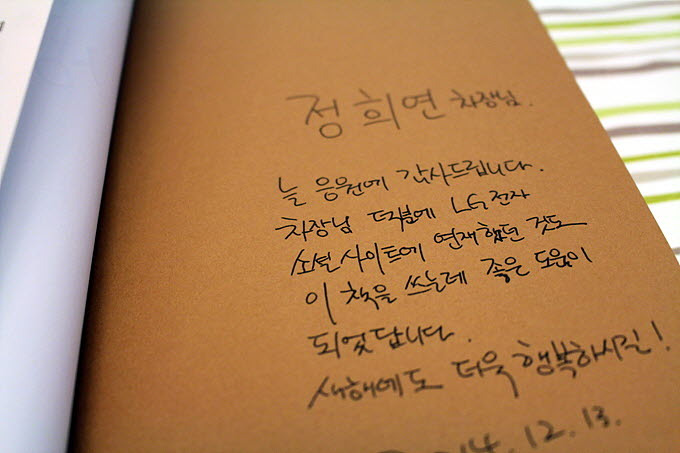 정희연 차장님.
늘 응원에 감사드립니다.
차장님 덕분에 LG전자
소셜사이트에 연재했던 것도
이 책을 쓰는데 좋은 도움이
되었답니다.
새해에도 더욱 행복하시길!
14. 12. 13.